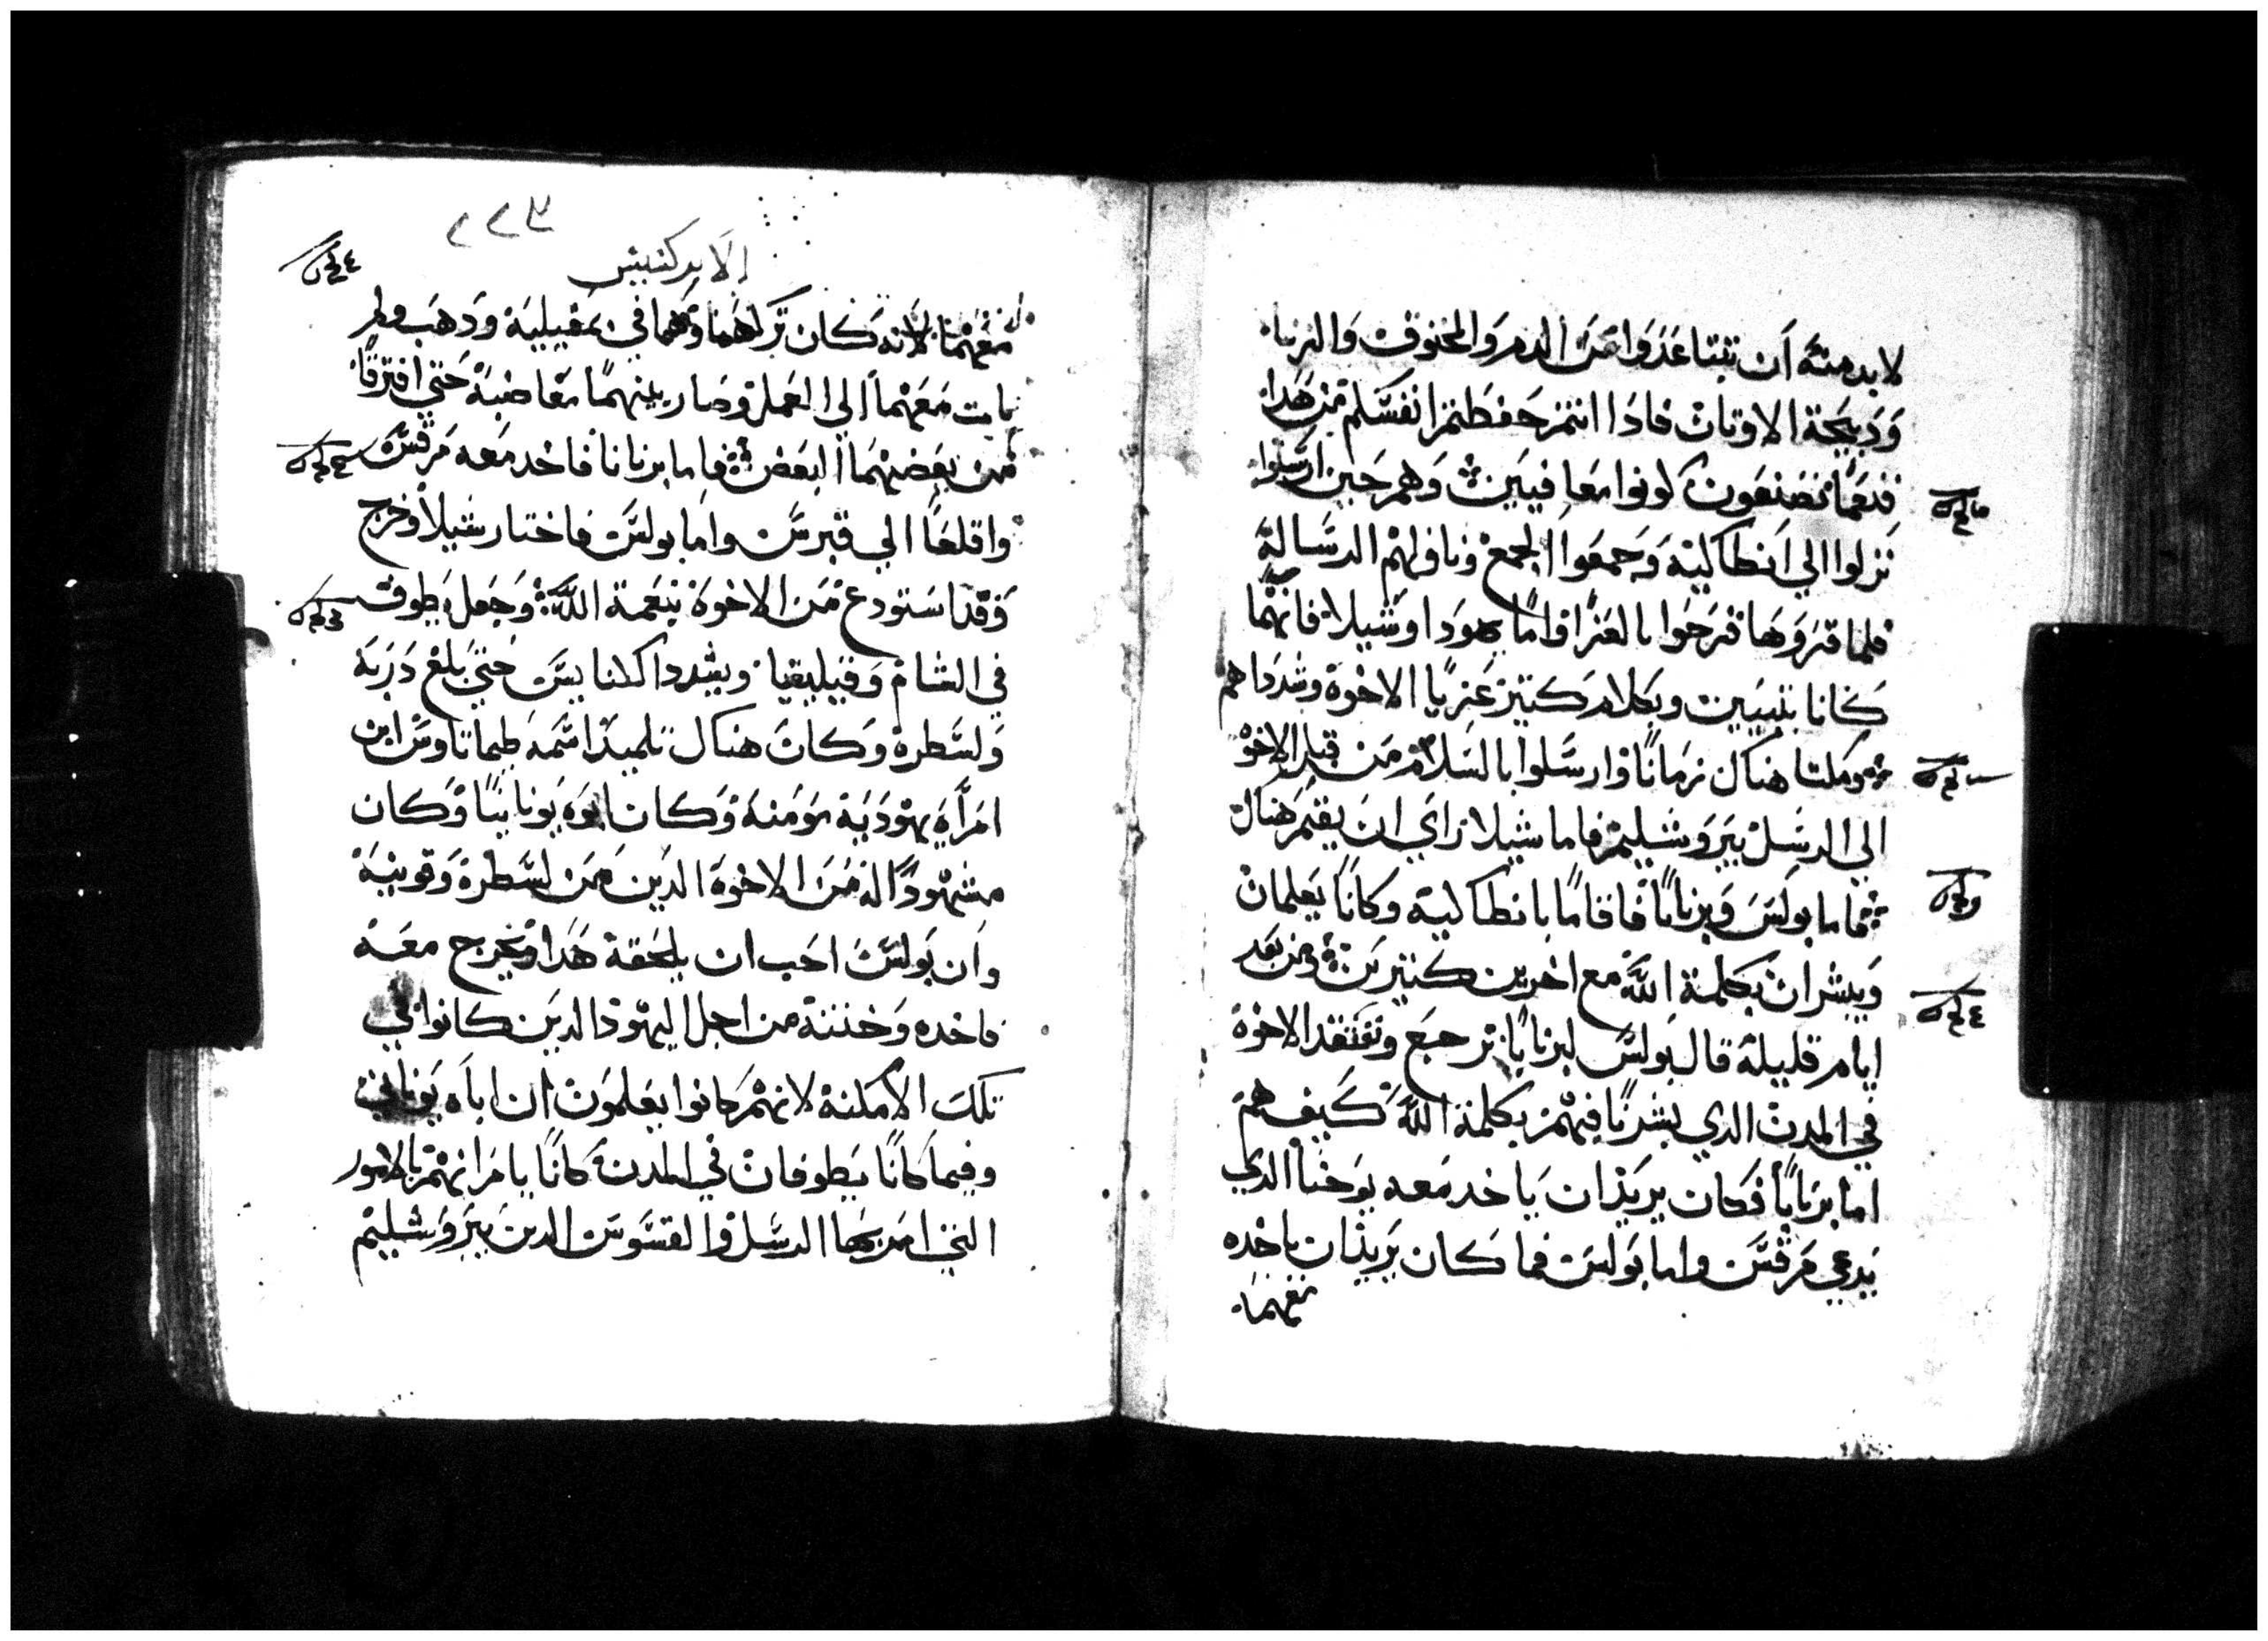 لابد منه ان تتباعدوا من الدم والمخنوق والزنا
ودبيحة الاوتان فادا انتم حفظتم انفسكم من هدا
فنعما تصنعون كونوا معافيين وهم حين ارسلوا
نزلوا الي انطاكية وجمعوا الجمع وناولهم الرسالة
فلما قروها فرحوا بالعزا واما يهودا وشيلا فانهما
كانا نبيين وبكلام كتير عزيا الاخوة وشدداهم
ومكتا هناك زمانا وارسلوا بالسلام من قبل الاخوة
الي الرسل بيروشليم فاما شيلا راي ان يقيم هناك
فاما بولس وبرنابا فاقاما بانطاكية وكانا يعلمان
ويبشران بكلمة الله مع اخرين كتيرين ومن بعد
ايام قليلة قال بولس لبرنابا نرجع ونفتقد الاخوة
في المدن الدي بشرنا فيهم بكلمة الله كيف هم
اما برنابا فكان يريد ان ياخد معه يوحنا الدي
يدعي مرقس واما بولس فما كان يريد ان ياخده
معهما
الابركسيس
معهما لانه كان تركهما وهما في بمفيلية ودهب ولم
يات معهما الي العمل وصار بينهما مغاضبة حتي افترقا
من بعضهما البعض فاما برنابا فاخد معه مرقس
واقلعا الي قبرس واما بولس فاختار شيلا وخرج
وقد استودع من الاخوة بنعمة الله وجعل يطوف
في الشام وقيليقيا ويشدد الكنايس حتي بلغ دربة
ولسطرة وكان هناك تلميدا اسمه طيماتاوس ابن
امراة يهودية مومنة وكان ابوه يونانيا وكان
مشهودا له من الاخوة الدين من لسطرة وقونية
وان بولس احب ان يلحقه هدا ويخرج معه
فاخده وختنه من اجل اليهود الدين كانوا في
تلك الامكنة لانهم كانوا يعلمون ان اباه يوناني
وفيما كانا يطوفان في المدن كانا يامرانهم بالامور
التي امر بها الرسل والقسوس الدين بيروشليم